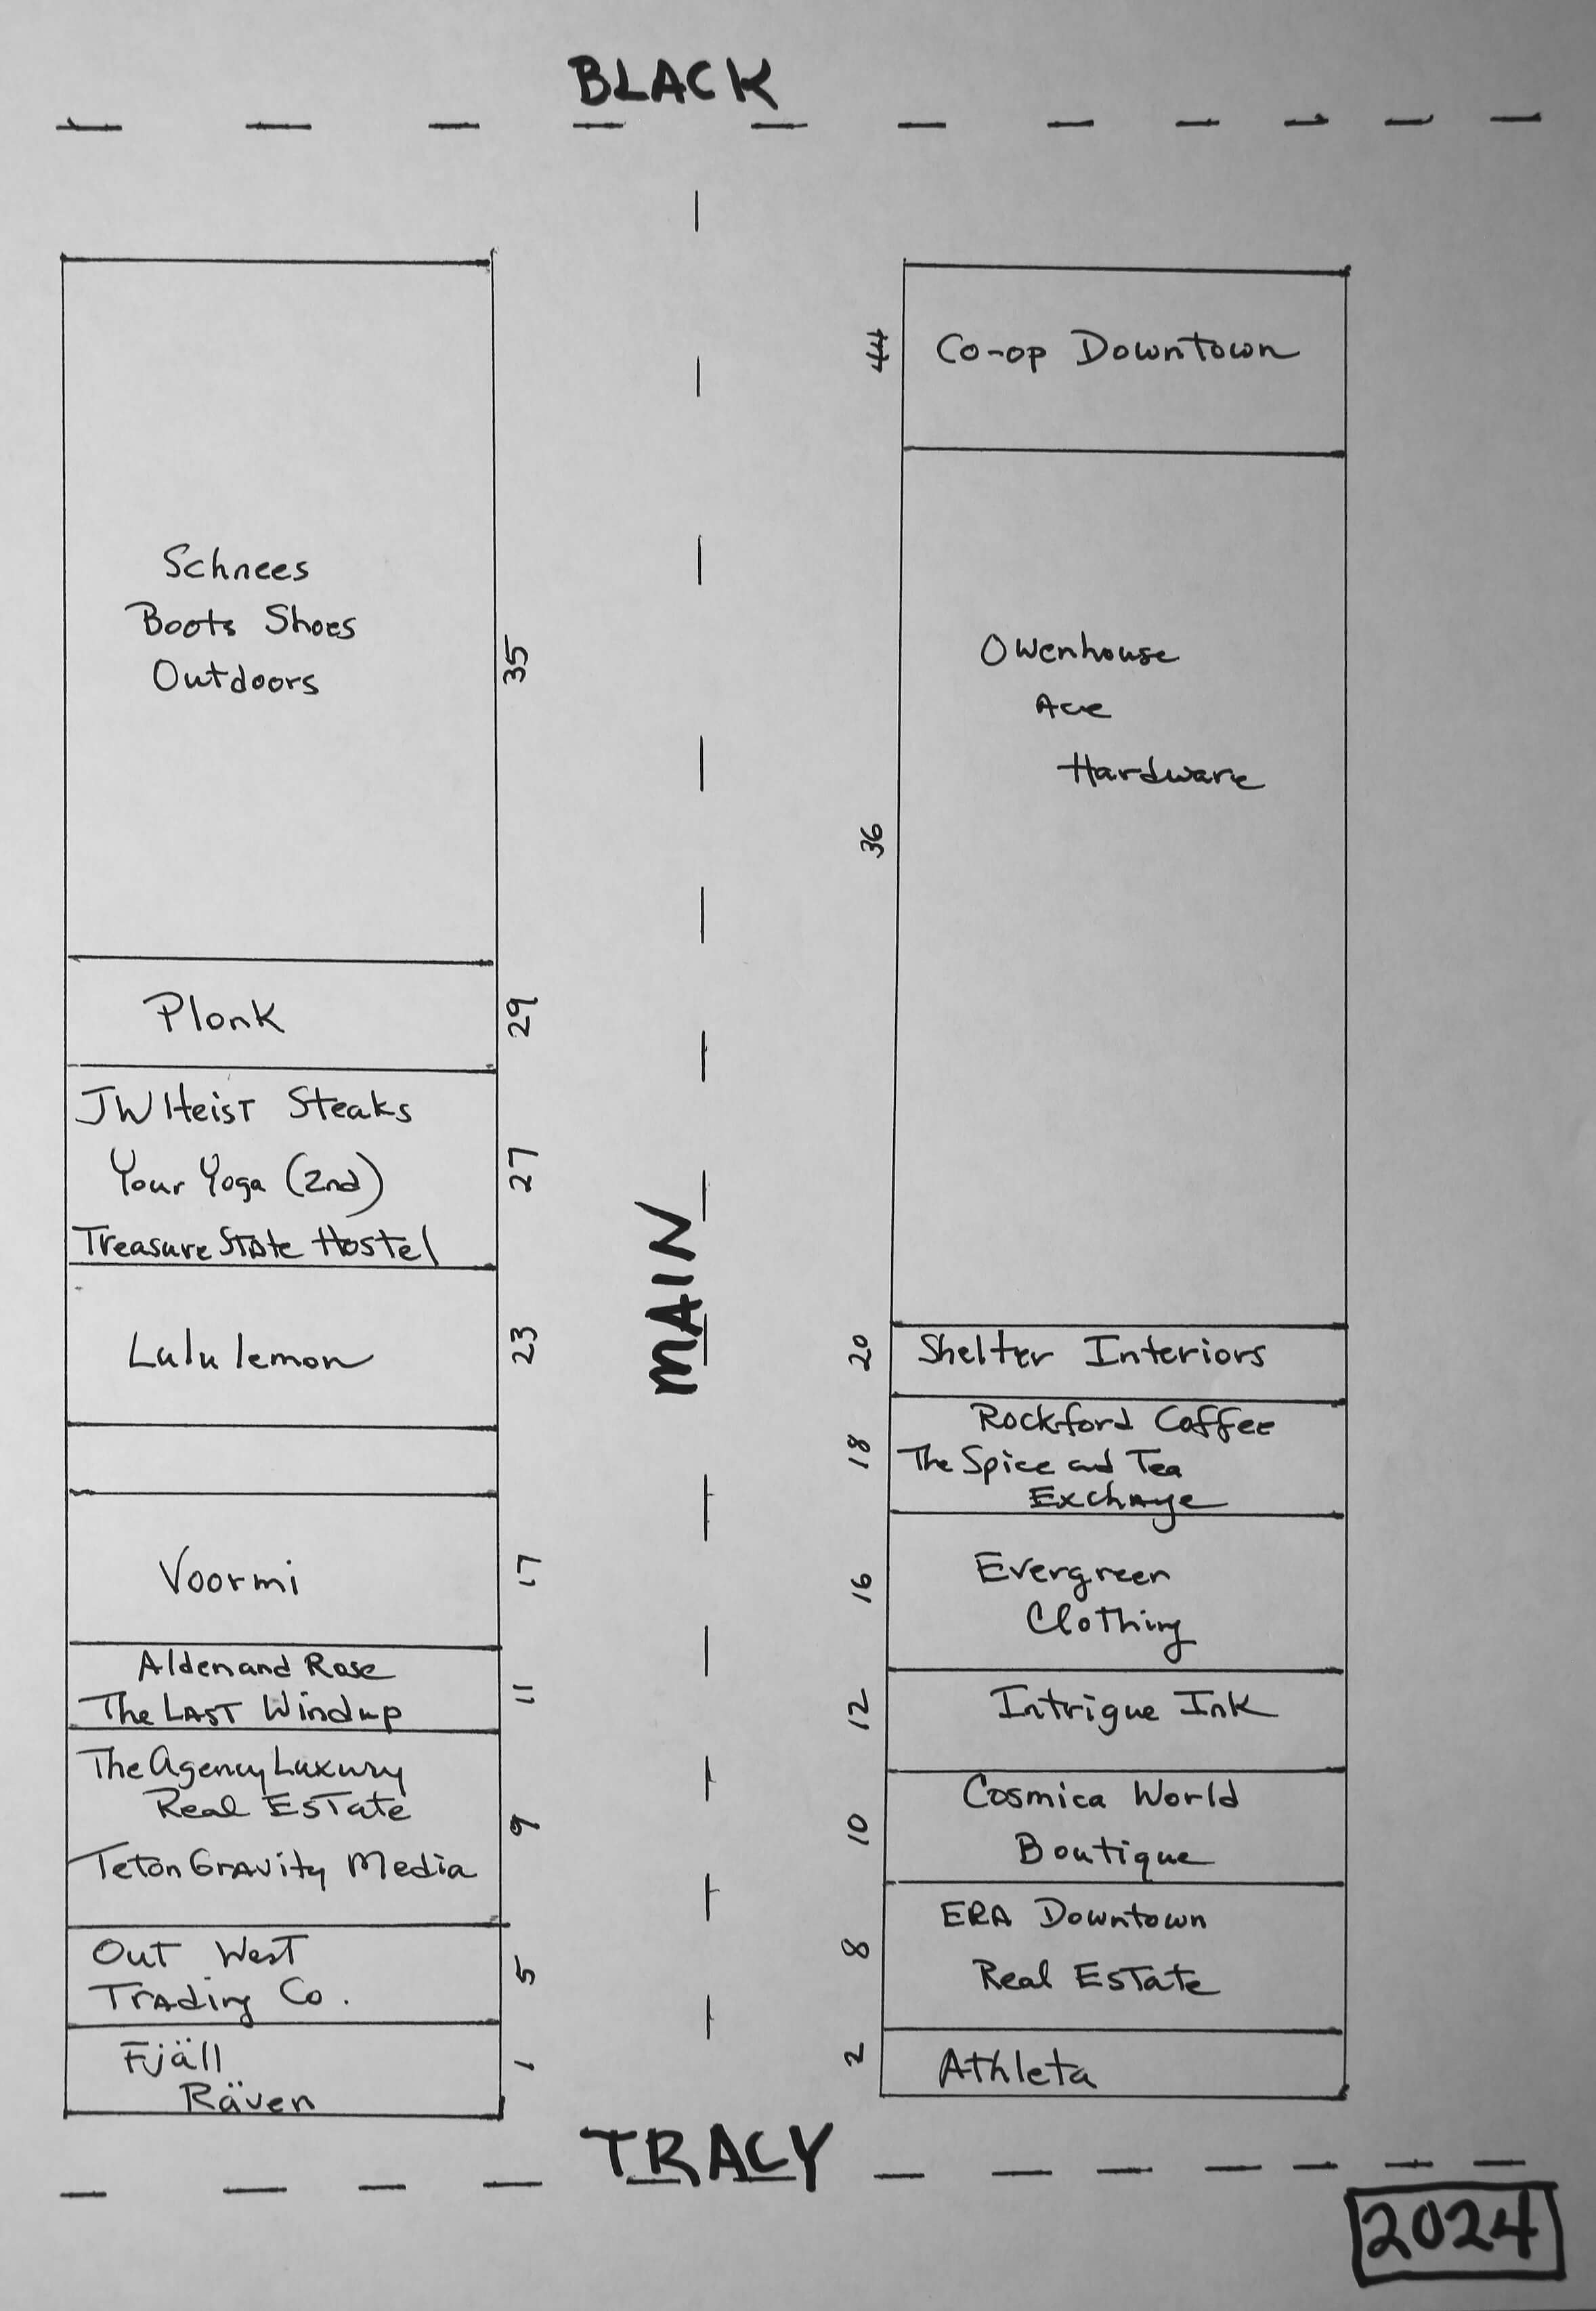 BLACK
Schnees
Boots Shoes
Outdoors
35
Plonk
29
JW Heist Steaks
Your Yoga (2nd)
Treasure State Hostel
27
Lululemon
23
Voormi
17
Alden and Rose
The Last Windup
11
The Agency Luxury
Real Estate
Teton Gravity Media
9
Out West
Trading Co.
5
Fjäll
Räven
1
MAIN
44
Co-op Downtown
36
Owenhouse
Ace
Hardware
20
Shelter Interiors
18
Rockford Coffee
The Spice and Tea
Exchange
16
Evergreen
Clothing
12
Intrigue Ink
10
Cosmica World
Boutique
8
ERA Downtown
Real Estate
2
Athleta
TRACY
2024